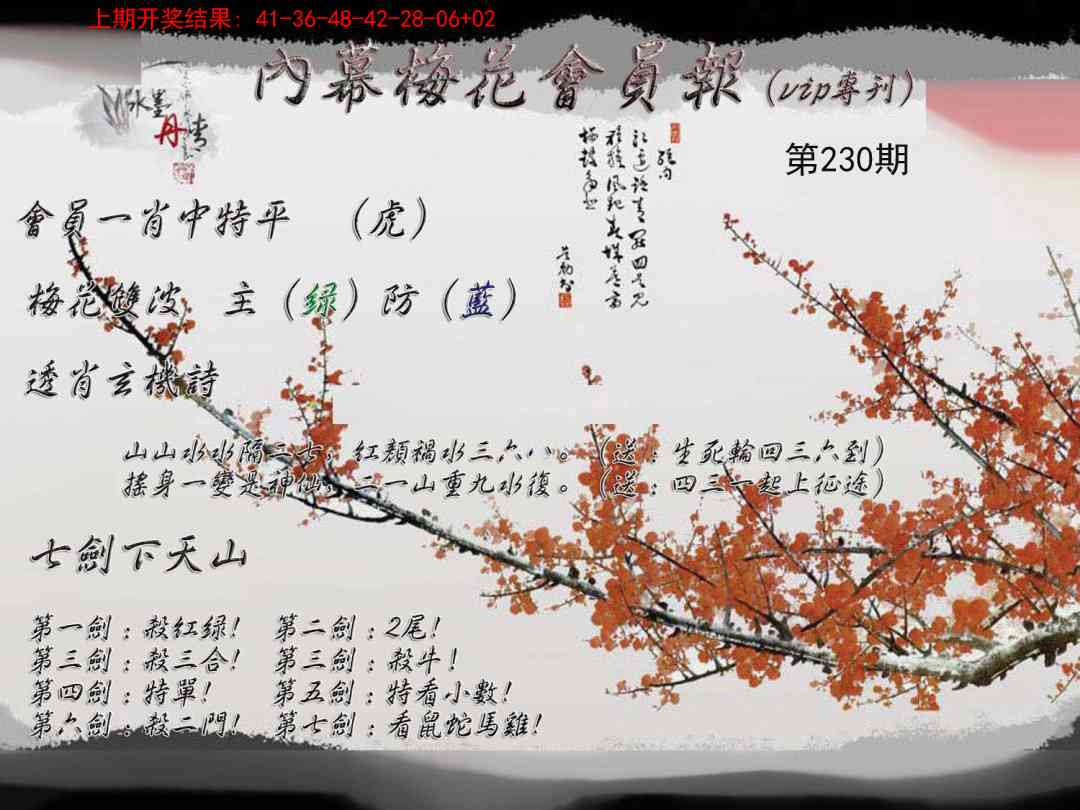 上期开奖结果: 41-36-48-42-28-06+02
內幕梅花會員報(vip專刊)
水墨
丹青
第230期
會員一肖中特平 (虎)
梅花雙波 主(绿)防(藍)
透肖玄機詩
山山水水隔二七，紅顏禍水三六八。(送：生死輪回三六到)
搖身一變是神仙，二一山重九水復。(送：四三一起上征途)
七劍下天山
第一劍：殺紅绿! 第二劍：2尾!
第三劍：殺三合! 第三劍：殺牛!
第四劍：特單! 第五劍：特看小數!
第六劍：殺二門! 第七劍：看鼠蛇馬雞!